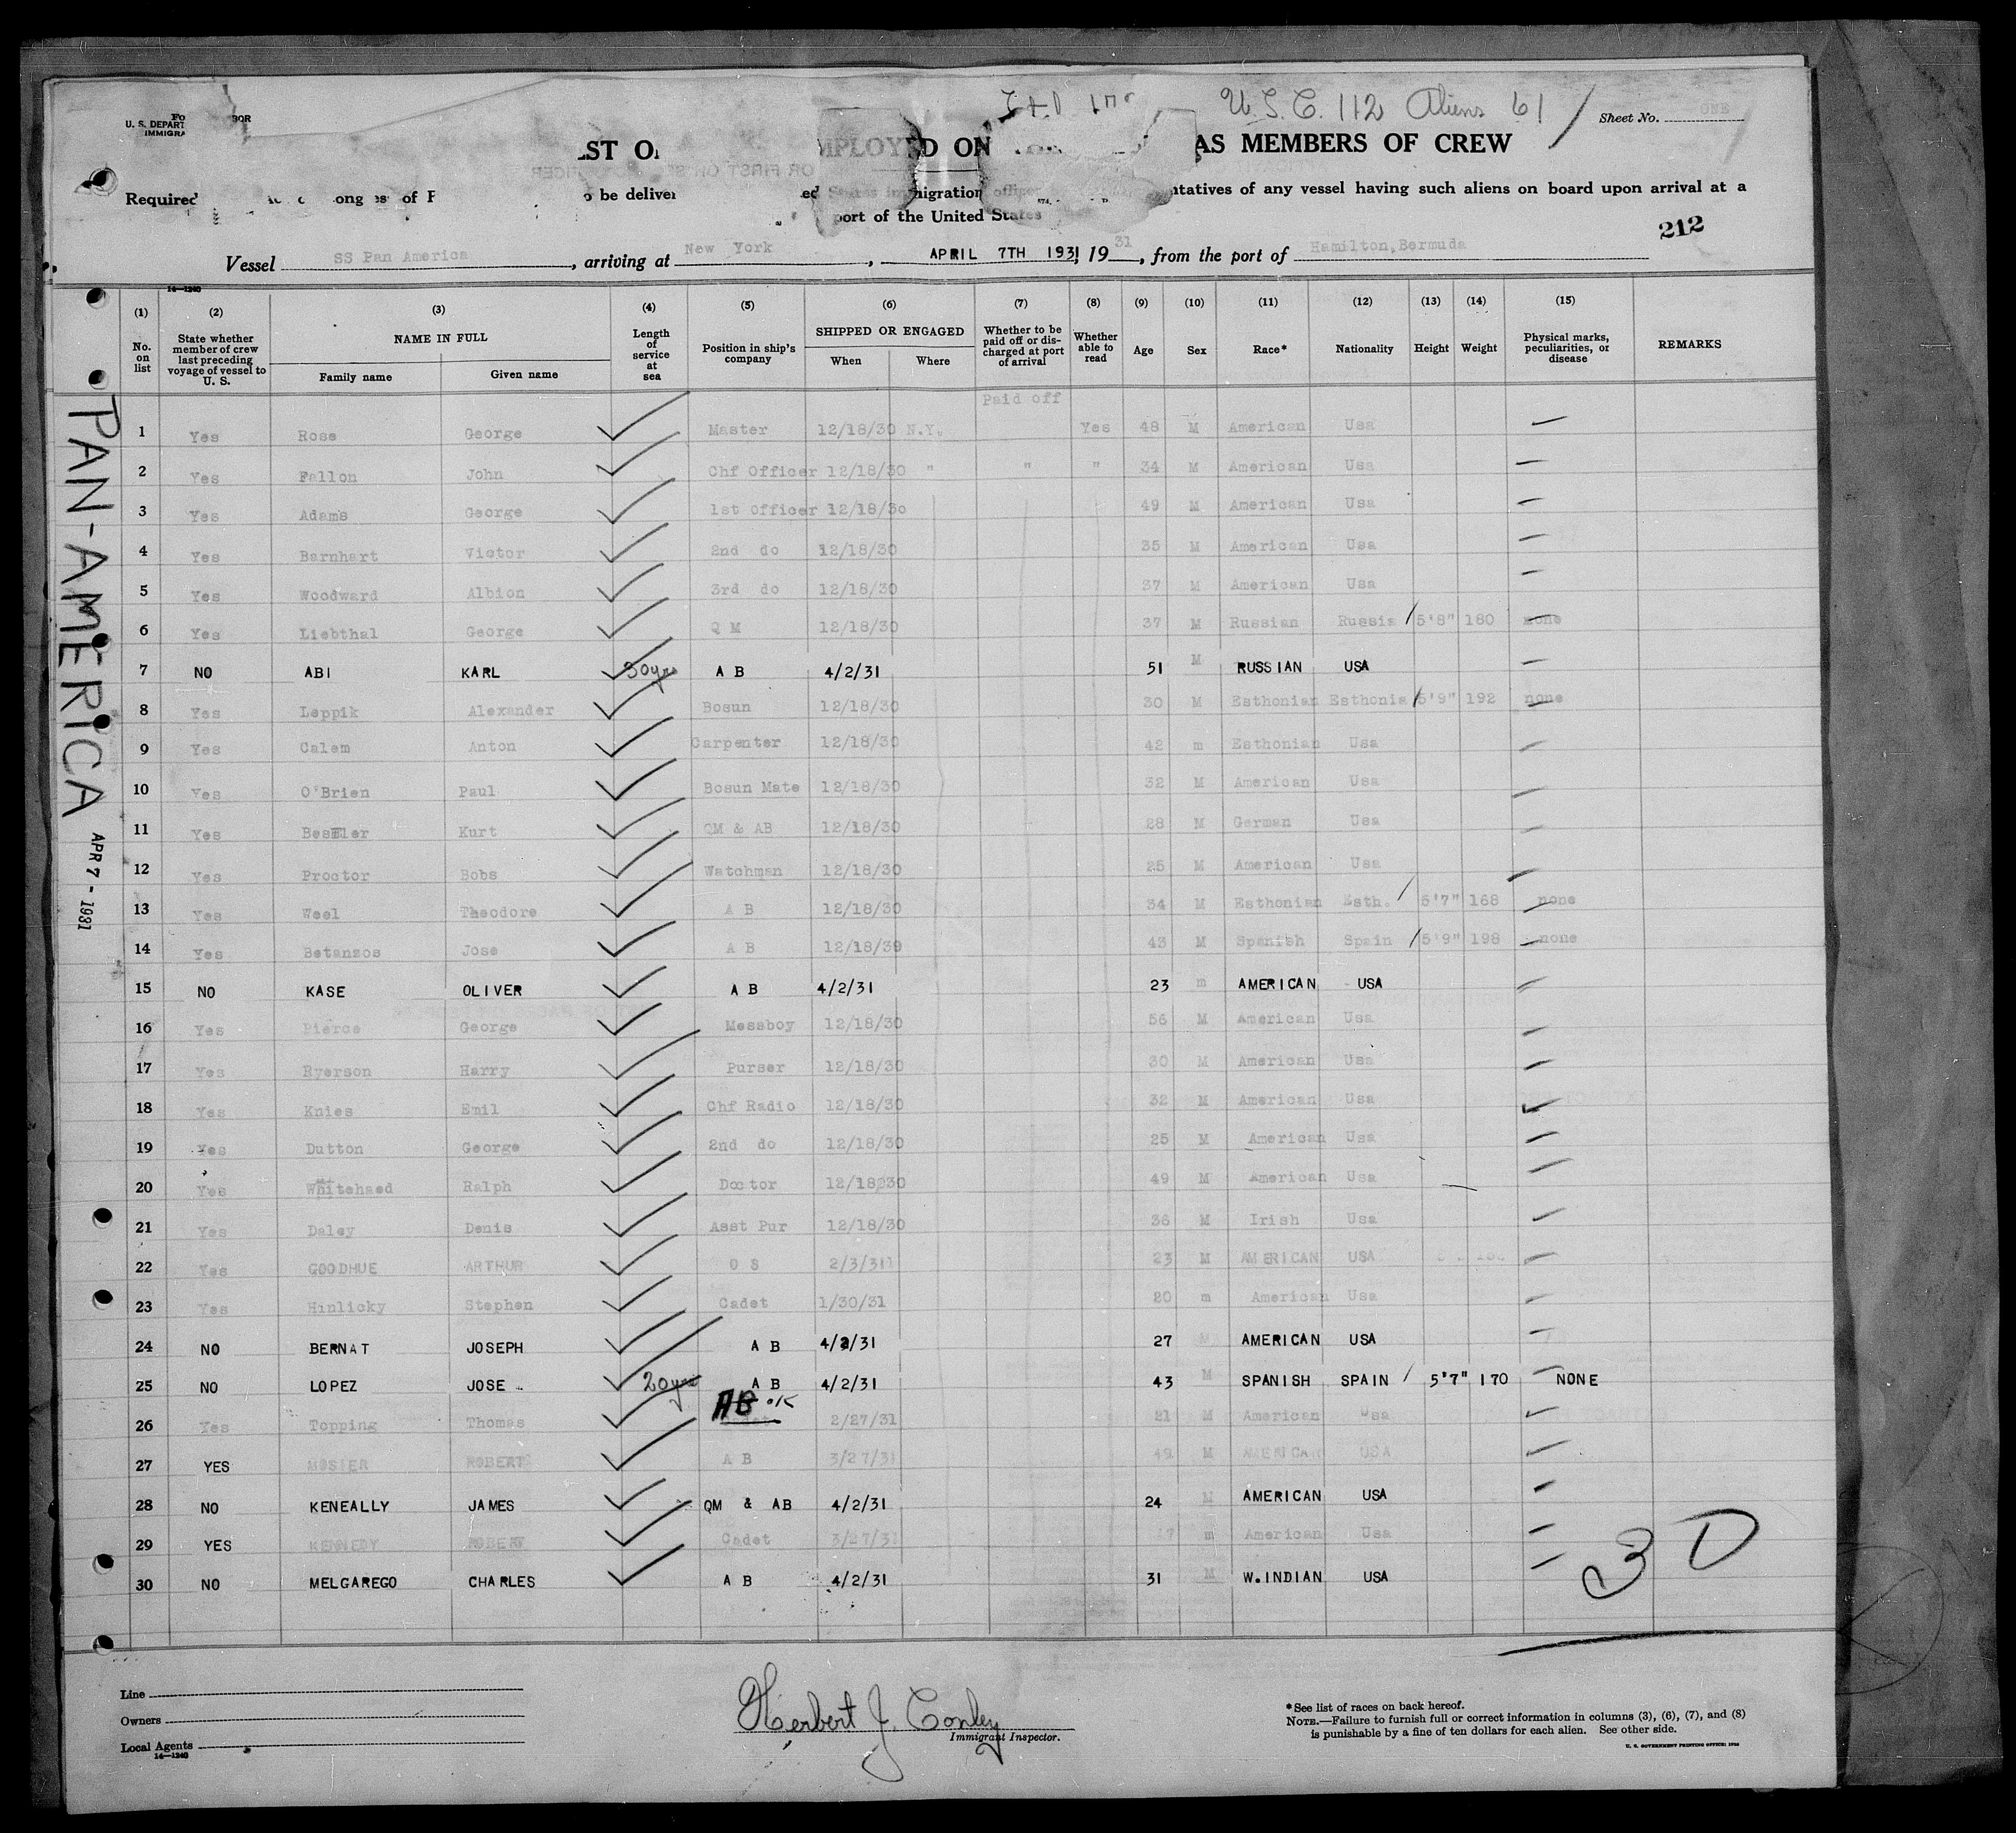 U. S. DEPART
IMMIGRA
U.S.C. 112 Aliens 61
Sheet No. ONE
AS MEMBERS OF CREW
Required of be deliver ntatives of any vessel having such aliens on board upon arrival at a
port of the United States
212
Vessel SS Pan America, arriving at New York, APRIL 7TH 1931, 1931, from the port of Hamilton, Bermuda
14—1240
(1) (2) (3) (4) (5) (6) (7) (8) (9) (10) (11) (12) (13) (14) (15)
No. on list State whether member of crew last preceding voyage of vessel to U. S. NAME IN FULL Family name Given name Length of service at sea Position in ship's company SHIPPED OR ENGAGED When Where Whether to be paid off or discharged at port of arrival Whether able to read Age Sex Race* Nationality Height Weight Physical marks, peculiarities, or disease REMARKS
Paid off
1 Yes Rose George Master 12/18/30 N.Y. Yes 48 M American Usa
2 Yes Fallon John Chf Officer 12/18/30 " " " 34 M American Usa
3 Yes Adams George 1st Officer 12/18/30 49 M American Usa
4 Yes Barnhart Victor 2nd do 12/18/30 35 M American Usa
5 Yes Woodward Albion 3rd do 12/18/30 37 M American Usa
6 Yes Liebthal George Q M 12/18/30 37 M Russian Russia 5'8" 180 none
7 NO ABI KARL 30yrs A B 4/2/31 51 M RUSSIAN USA
8 Yes Leppik Alexander Bosun 12/18/30 30 M Esthonian Esthonia 5'9" 192 none
9 Yes Calem Anton Carpenter 12/18/30 42 m Esthonian Usa
10 Yes O'Brien Paul Bosun Mate 12/18/30 32 M American Usa
11 Yes Kurt QM & AB 12/18/30 28 M German Usa
12 Yes Proctor Bobs Watchman 12/18/30 25 M American Usa
13 Yes Weel Theodore A B 12/18/30 34 M Esthonian Esth. 5'7" 168 none
14 Yes Betanzos Jose A B 12/18/30 43 M Spanish Spain 5'9" 198 none
15 NO KASE OLIVER A B 4/2/31 23 m AMERICAN USA
16 Yes Pierce George Messboy 12/18/30 56 M American Usa
17 Yes Ryerson Harry Purser 12/18/30 30 M American Usa
18 Yes Knies Emil Chf Radio 12/18/30 32 M American Usa
19 Yes Dutton George 2nd do 12/18/30 25 M American Usa
20 Yes Whitehaed Ralph Doctor 12/18/30 49 M American Usa
21 Yes Daley Denis Asst Pur 12/18/30 36 M Irish Usa
22 Yes GOODHUE ARTHUR O S 2/3/31 23 M AMERICAN USA
23 Yes Hinlicky Stephen Cadet 1/30/31 20 m American Usa
24 NO BERNAT JOSEPH A B 4/2/31 27 M AMERICAN USA
25 NO LOPEZ JOSE 20yrs A B 4/2/31 43 M SPANISH SPAIN 5'7" 170 NONE
26 Yes Topping Thomas Cadet AB OK 2/27/31 21 M American Usa
27 YES MOSIER ROBERT A B 3/27/31 49 M AMERICAN USA
28 NO KENEALLY JAMES QM & AB 4/2/31 24 M AMERICAN USA
29 YES KENNEDY ROBERT Cadet 3/27/31 m American Usa
30 NO MELGAREGO CHARLES A B 4/2/31 31 M W.INDIAN USA
PAN-AMERICA
APR 7 - 1931
3 D
Line
Owners
Local Agents
14—1240
Herbert J. Conley
Immigrant Inspector.
*See list of races on back hereof.
NOTE.—Failure to furnish full or correct information in columns (3), (6), (7), and (8)
is punishable by a fine of ten dollars for each alien. See other side.